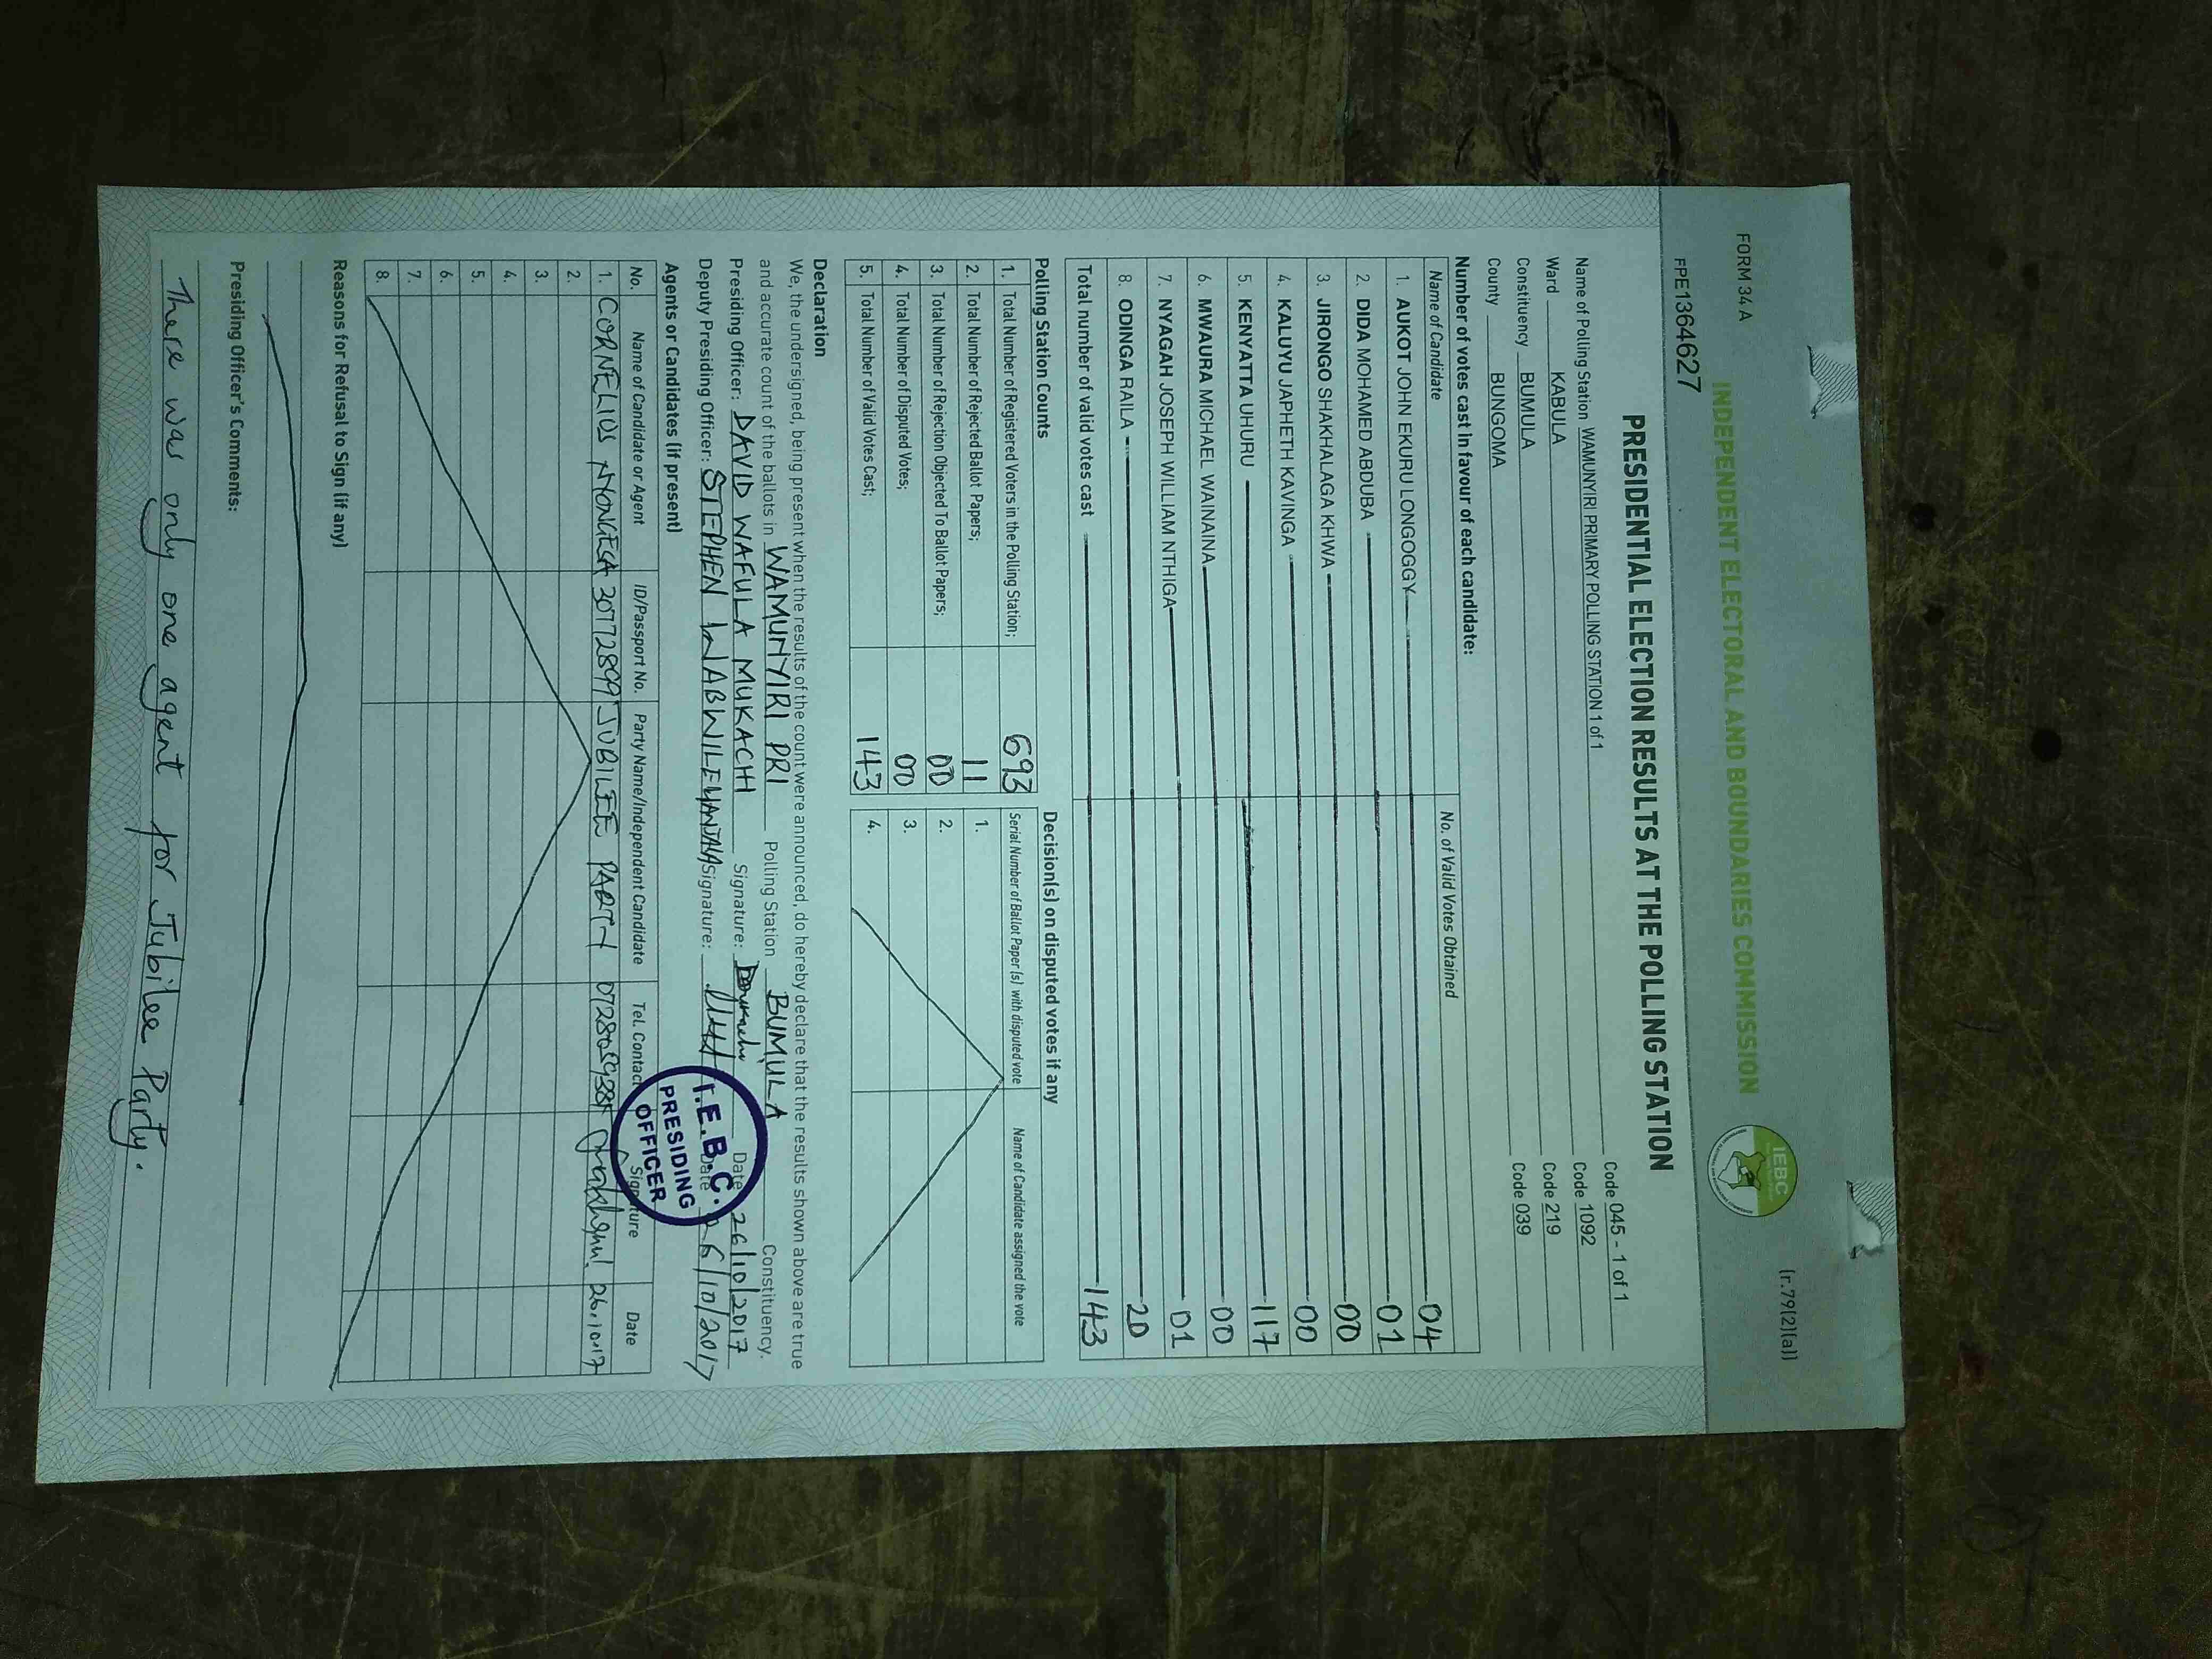 FORM 34 A
(r.79(2)(a))
INDEPENDENT ELECTORAL AND BOUNDARIES COMMISSION
IEBC
FPE1364627
PRESIDENTIAL ELECTION RESULTS AT THE POLLING STATION
Name of Polling Station WAMUNYIRI PRIMARY POLLING STATION 1 of 1 Code 045 - 1 of 1
Ward KABULA Code 1092
Constituency BUMULA Code 219
County BUNGOMA Code 039
Number of votes cast in favour of each candidate:
Name of Candidate No. of Valid Votes Obtained
1. AUKOT JOHN EKURU LONGOGGY 04
2. DIDA MOHAMED ABDUBA 01
3. JIRONGO SHAKHALAGA KHWA 00
4. KALUYU JAPHETH KAVINGA 00
5. KENYATTA UHURU 117
6. MWAURA MICHAEL WAINAINA 00
7. NYAGAH JOSEPH WILLIAM NTHIGA 01
8. ODINGA RAILA 20
Total number of valid votes cast 143
Polling Station Counts
1. Total Number of Registered Voters in the Polling Station; 693
2. Total Number of Rejected Ballot Papers; 11
3. Total Number of Rejection Objected To Ballot Papers; 00
4. Total Number of Disputed Votes; 00
5. Total Number of Valid Votes Cast; 143
Decision(s) on disputed votes if any
Serial Number of Ballot Paper (s) with disputed vote Name of Candidate assigned the vote
1.
2.
3.
4.
Declaration
We, the undersigned, being present when the results of the count were announced, do hereby declare that the results shown above are true
and accurate count of the ballots in WAMUNYIRI PRI Polling Station BUMULA Constituency.
Presiding Officer: DAVID WAFULA MUKACHI Signature: Date 26/10/2017
Deputy Presiding Officer: STEPHEN Signature: Date 26/10/2017
I.E.B.C.
PRESIDING
OFFICER
Agents or Candidates (if present)
No. Name of Candidate or Agent ID/Passport No. Party Name/Independent Candidate Tel. Contact Signature Date
1. CORNELIUS NYONGESA 30772899 JUBILEE PARTY 26.10.17
2.
3.
4.
5.
6.
7.
8.
Reasons for Refusal to Sign (if any)
Presiding Officer's Comments:
There was only one agent for Jubilee Party.